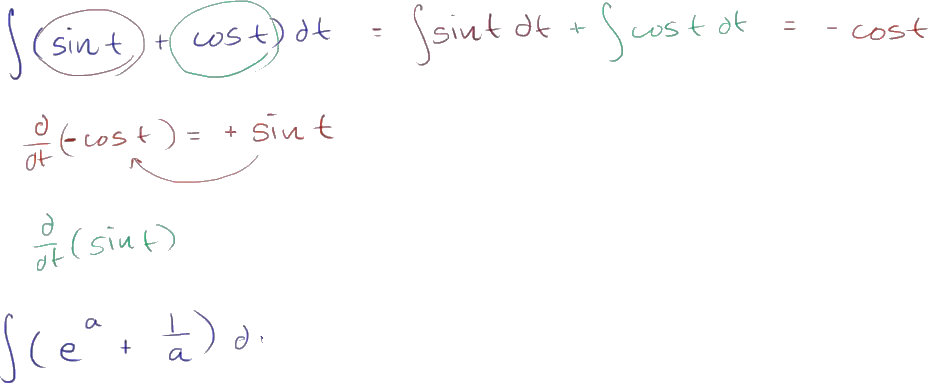 ∫(sin t + cos t) dt = ∫sin t dt + ∫cos t dt = - cos t
d/dt (-cos t) = + sin t
d/dt (sin t)
∫(e^a + 1/a) d